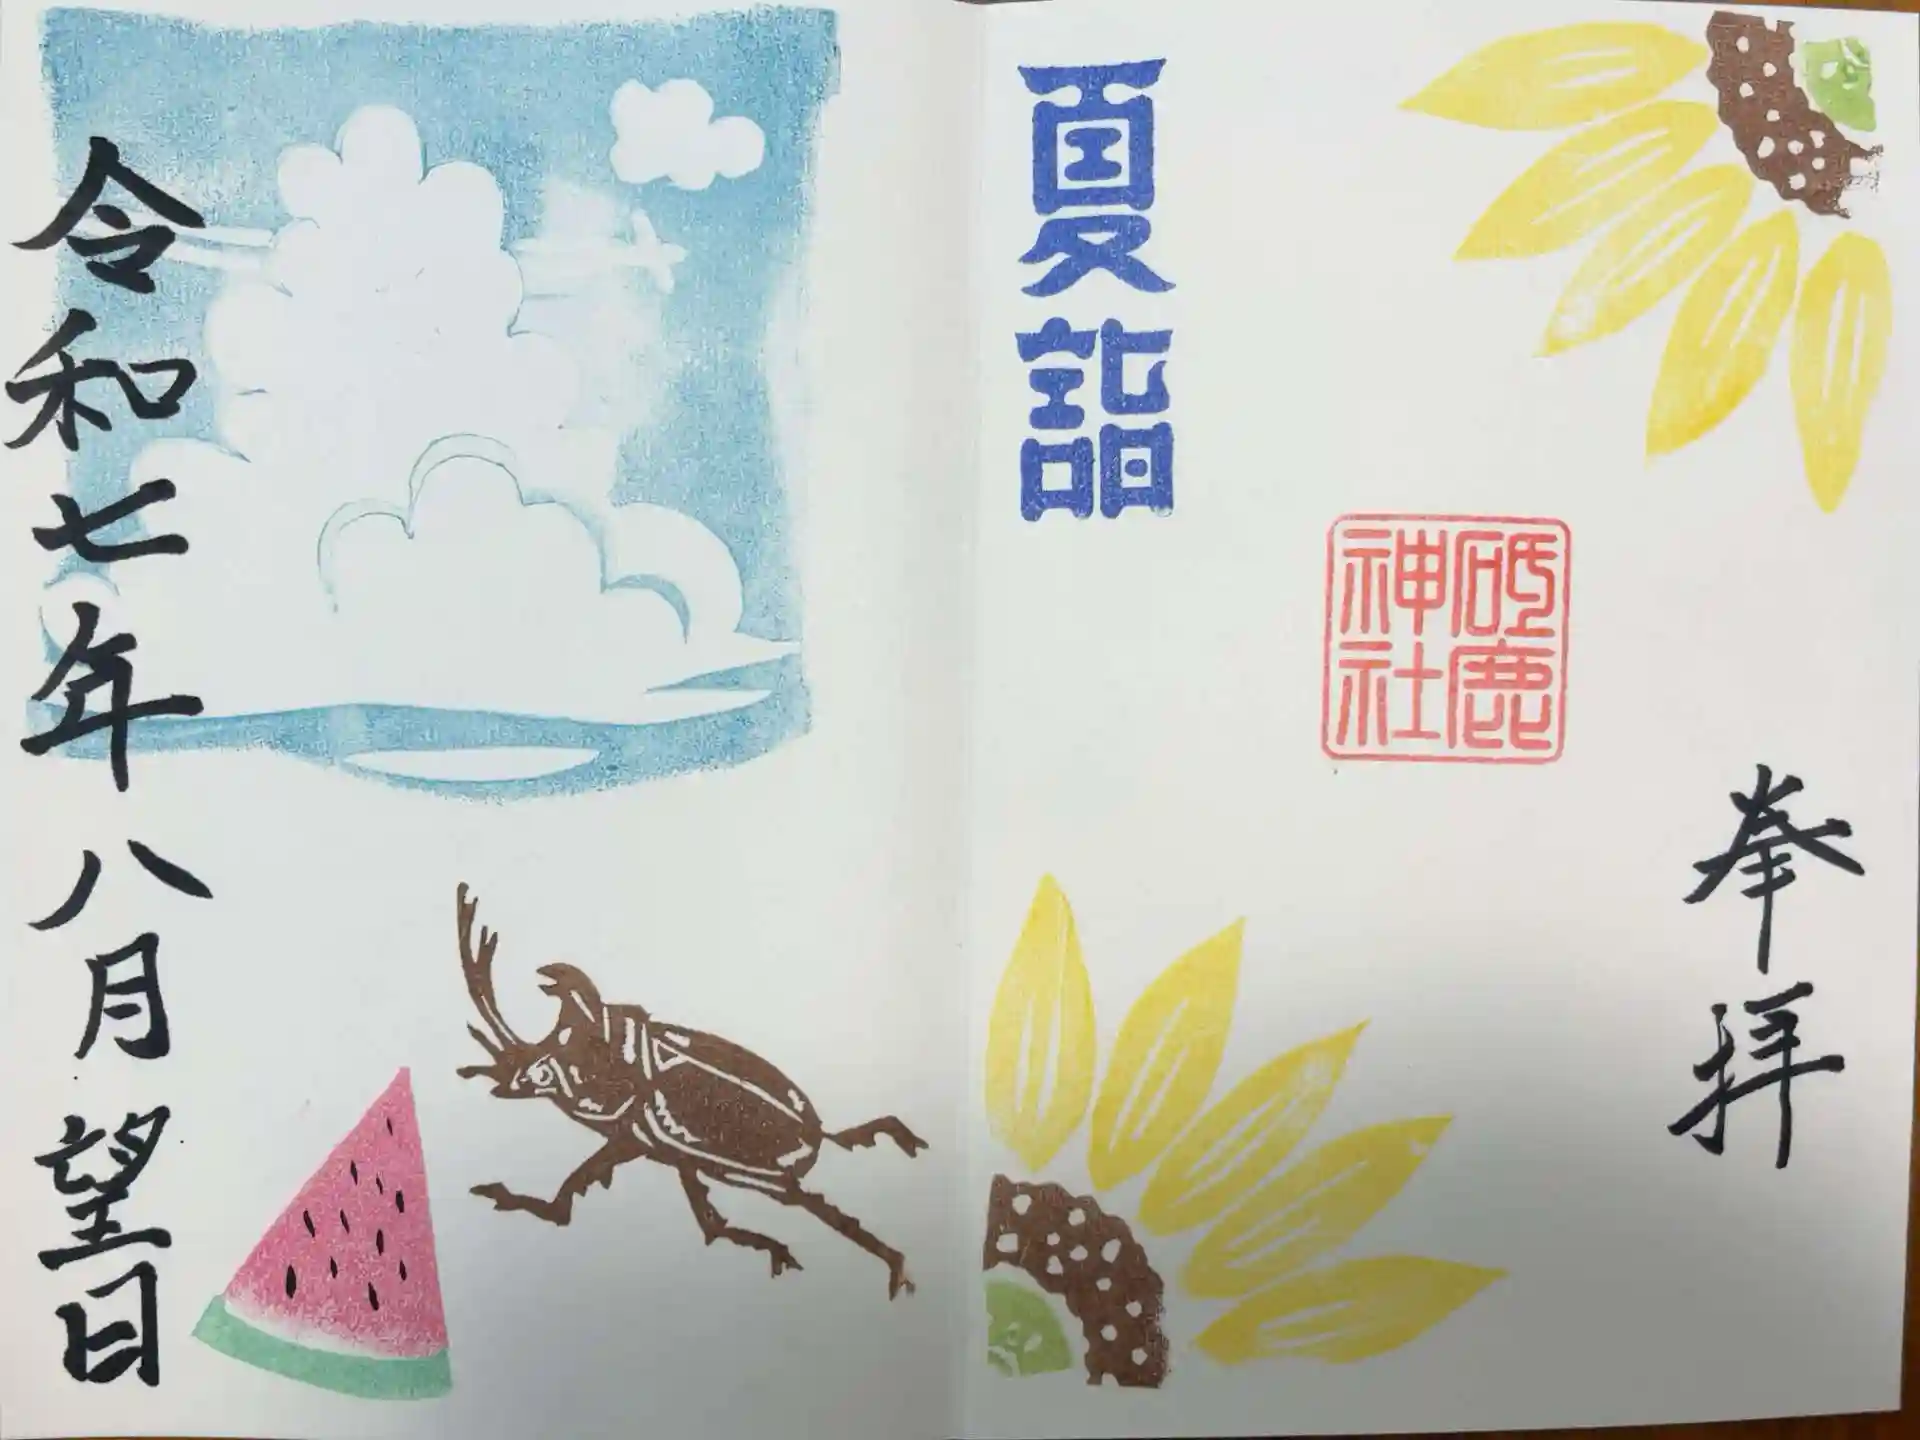 奉拝
砥鹿
神社
夏詣
令和七年八月望日